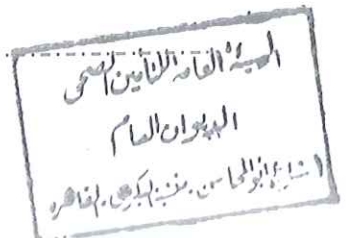 الهيئة العامة للتأمين الصحى
الديوان العام
١ شارع ابو المحاسن - منشية البكرى - القاهرة